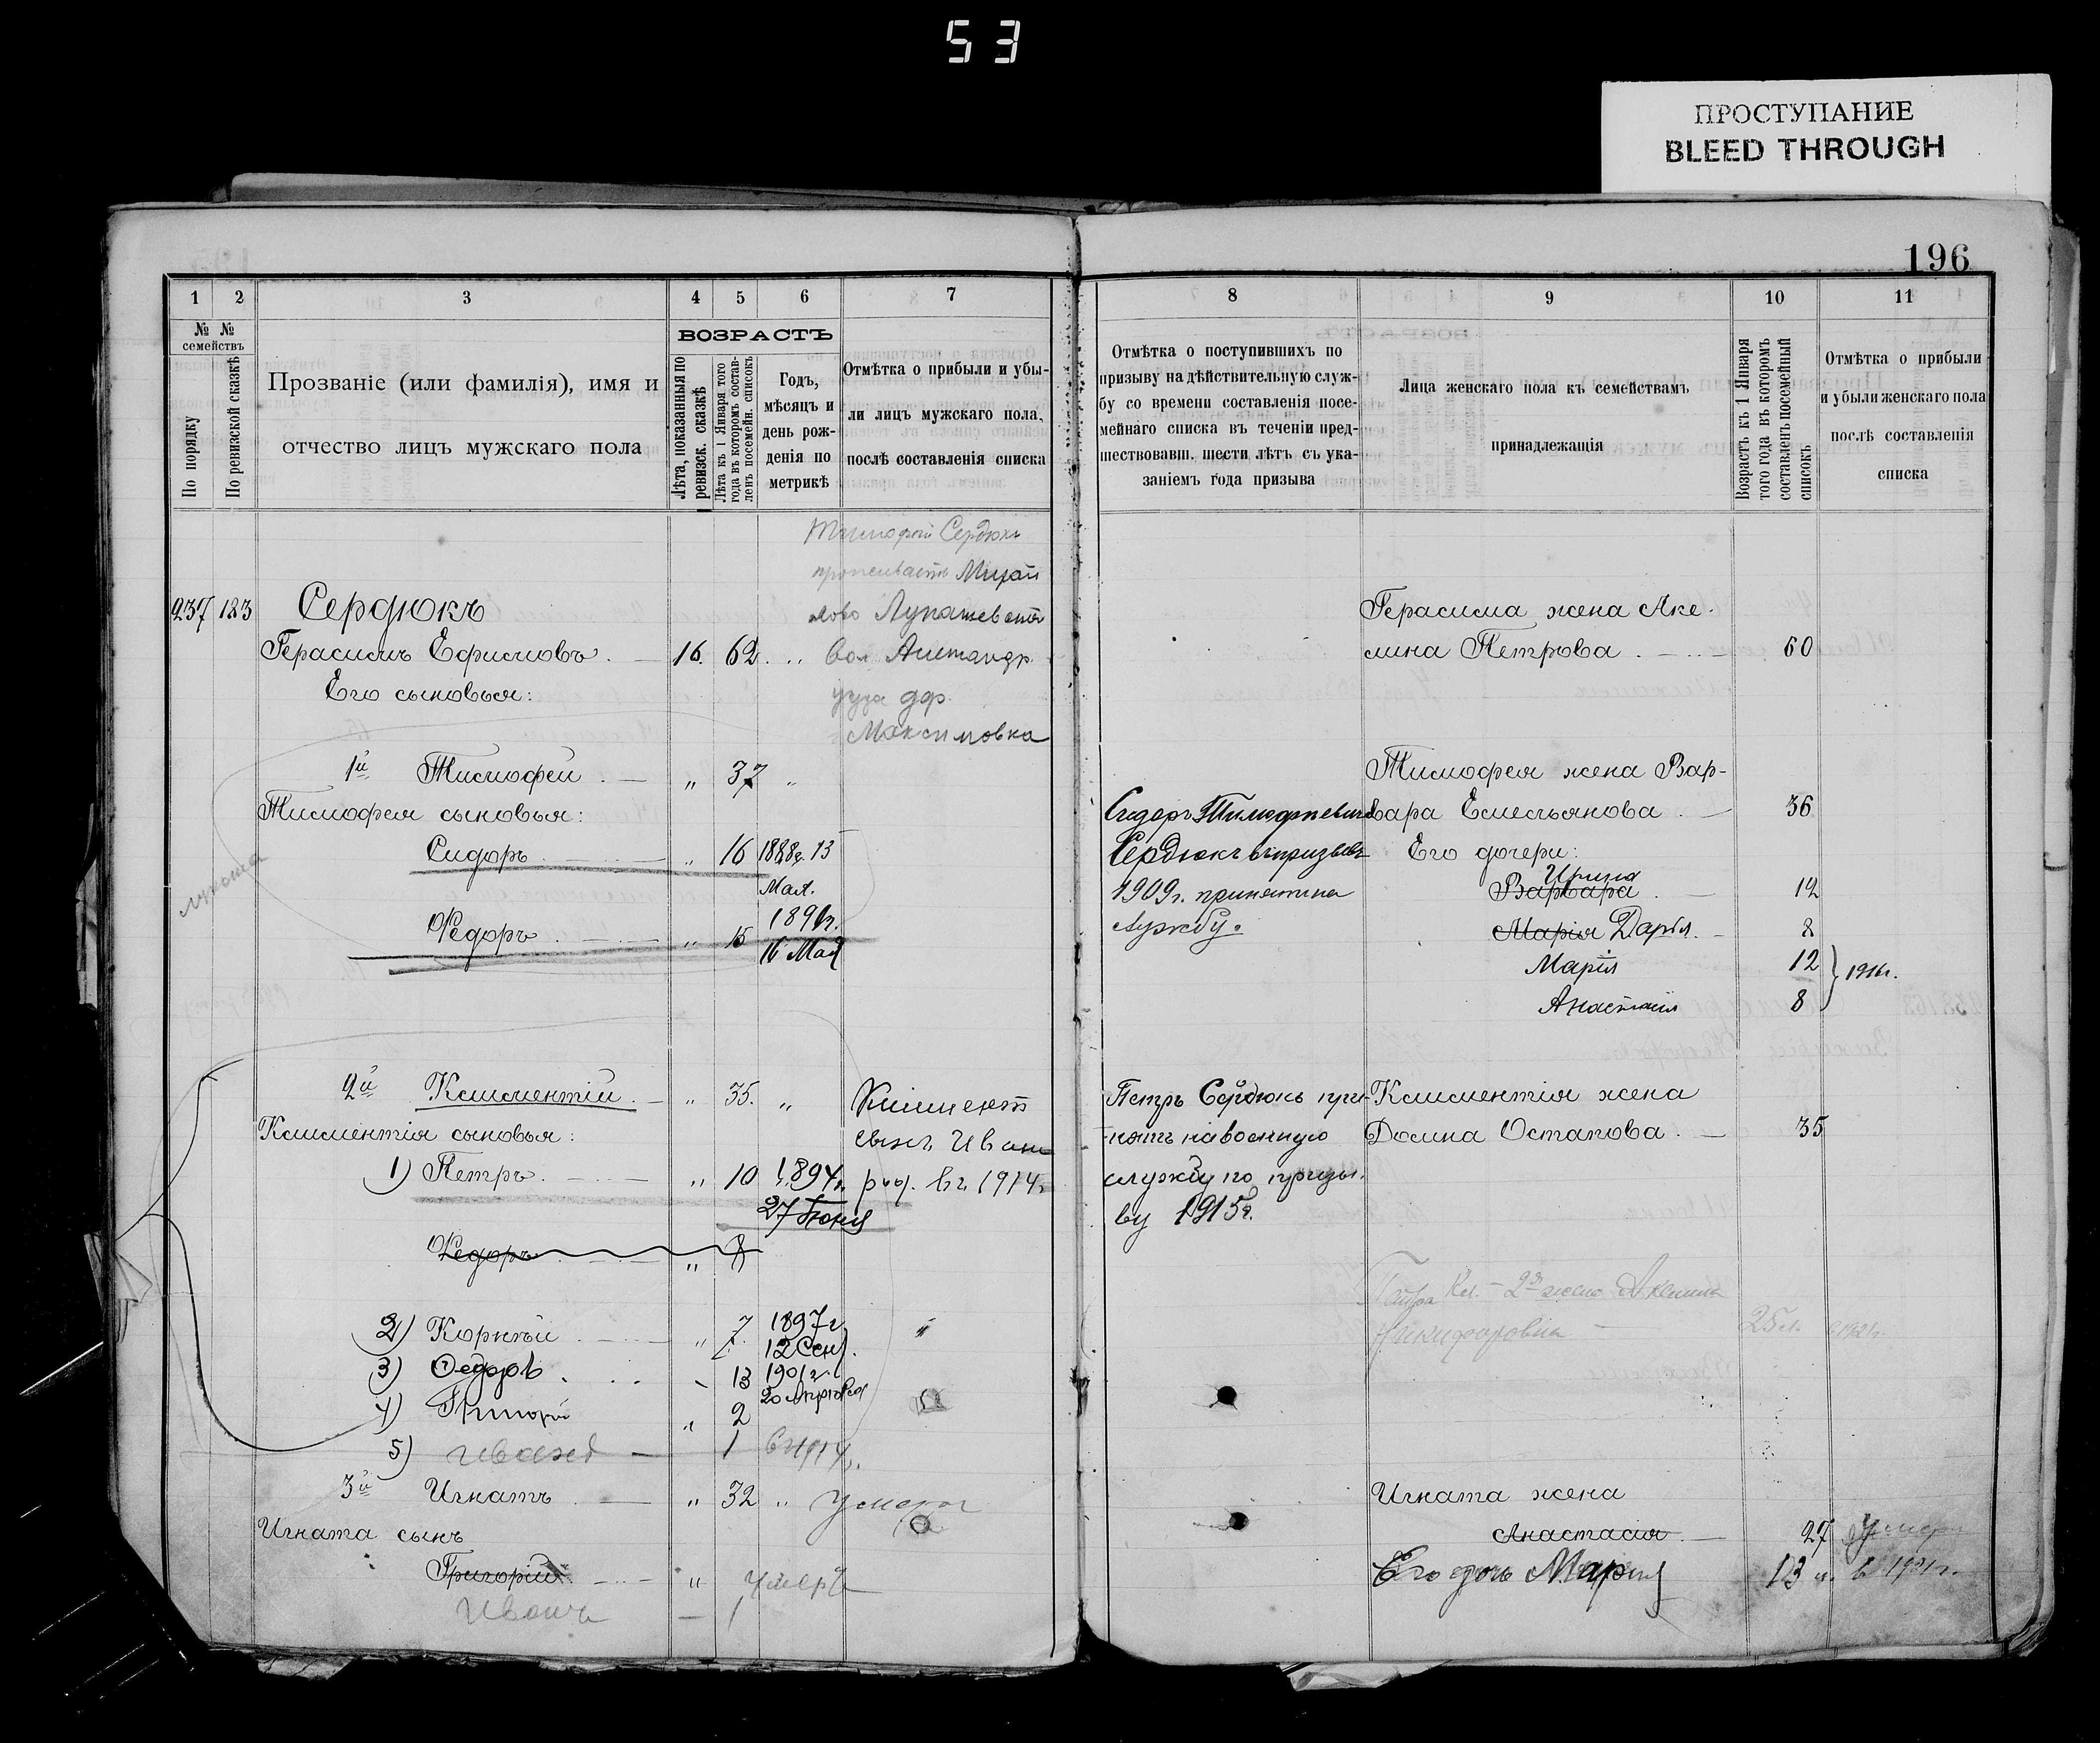 53
ПРОСТУПАНИЕ
BLEED THROUGH
196
1 2 3 4 5 6 7
№ № семействъ
По порядку
По ревизской сказкѣ
Прозваніе (или фамилія), имя и
отчество лицъ мужскаго пола
ВОЗРАСТЪ
Лѣта, показанныя по ревизск. сказкѣ
Лѣта къ 1 Января того года въ которомъ составленъ посемейн. списокъ
Годъ,
мѣсяцъ и
день рож-
денія по
метрикѣ
Отмѣтка о прибыли и убы-
ли лицъ мужскаго пола,
послѣ составленія списка
Тимофей Сердюкъ
проживаетъ Михай
лово Лукашевской
237 183 Сердюкъ
Герасимъ Ефимовъ. — 16. 62. „ Вол
Его сыновья:
Максимовка
1й Тимофей. — „ 37 „
Тимофея сыновья:
Сидоръ — „ 16 1888г. 13
Мая.
Федоръ — „ 15 1891г.
16 Мая
2й Климентій. — „ 35. „
Климентія сыновья:
сынъ Иванъ
1) Петръ. — „ 10 1894г. род. въ 1914г.
27 Іюня
Федоръ — „ 8
2) Корнѣй — „ 7. 1897г.
12 Сен.
3) Федоръ 13 1901г.
4) Григорій „ 2
5) Иванъ — 1 въ 1914.
3й Игнатъ — „ 32 „ умеръ
Игната сынъ
Григорій — „ умеръ
Иванъ — 1
8 9 10 11
Отмѣтка о поступившихъ по
призыву на дѣйствительную служ-
бу со времени составленія посе-
мейнаго списка въ теченіи пред-
шествовавш. шести лѣтъ съ ука-
заніемъ года призыва
Лица женскаго пола къ семействамъ
принадлежащія
Возрастъ къ 1 Января того года въ которомъ составленъ посемейный списокъ
Отмѣтка о прибыли
и убыли женскаго пола
послѣ составленія
списка
Герасима жена Аке-
лина Петрова — 60
Тимофея жена Вар-
Сидоръ Тимофеевичъ вара Емельянова — 36
Сердюкъ въ призывъ Его дочери:
Ирина
1909г. принятъ на Варвара — 12
службу. Марія Дарья. — 8
Марія 12 } 1916г.
Анастасія 8
Петръ Сердюкъ при- Климентія жена
нятъ на военную Домна Остапова. — 35
службу по призы-
ву 1915г.
Петра Кл. — 2я жена Акелина
Никифоровна — 25 л. в 1921г.
Игната жена
Анастасія — 27
Его дочь Марія 13 л. в 1921г.